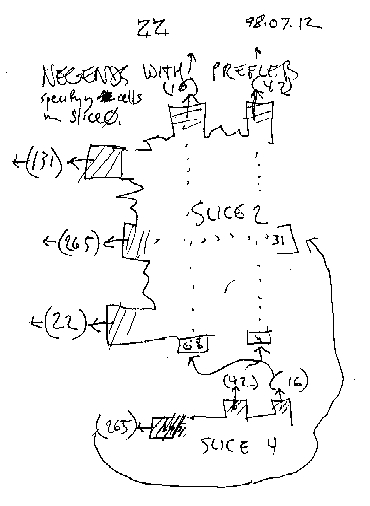 ZZ 98.07.12
NEGENDS WITH PREFLEBS
specifying cells
in slice 0.
(16) (42)
(131)
SLICE 2
(265) 31
(22)
68
(42) (16)
(265)
SLICE 4